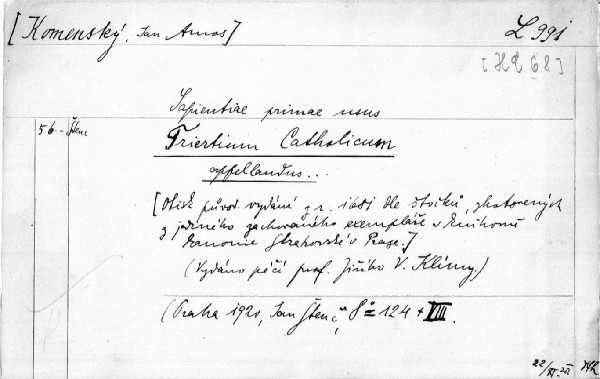 [Komenský, Jan Amos] L 991
[H2 68]
Sapientiae primae usus
56.- Štenc Triertium Catholicum
appellandus...
[Otisk původ. vydání z r. 1681 dle štočků, zhotovených
z jediného zachovaného exempláře v knihovně
kanonie Strahovské v Praze.]
(Vydáno péčí prof. Jiřího V. Klímy.)
(Praha 1920, Jan Štenc, 8° = 124 + VIII.
22/XI.